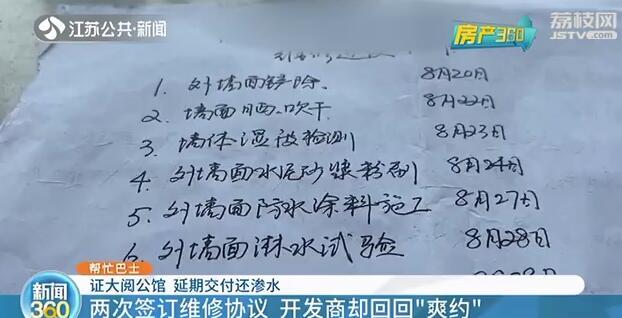 江苏公共·新闻
房产360
荔枝网
JSTV.com
1. 外墙面铲除 8月20日
2. 墙面晒、吹干 8月22日
3. 墙体湿度检测 8月23日
4. 外墙面水泥砂浆粉刷 8月24日
5. 外墙面防水涂料施工 8月27日
6. 外墙面淋水试验 8月28日
帮忙巴士
证大阅公馆 延期交付还渗水
新闻360
两次签订维修协议 开发商却回回"爽约"